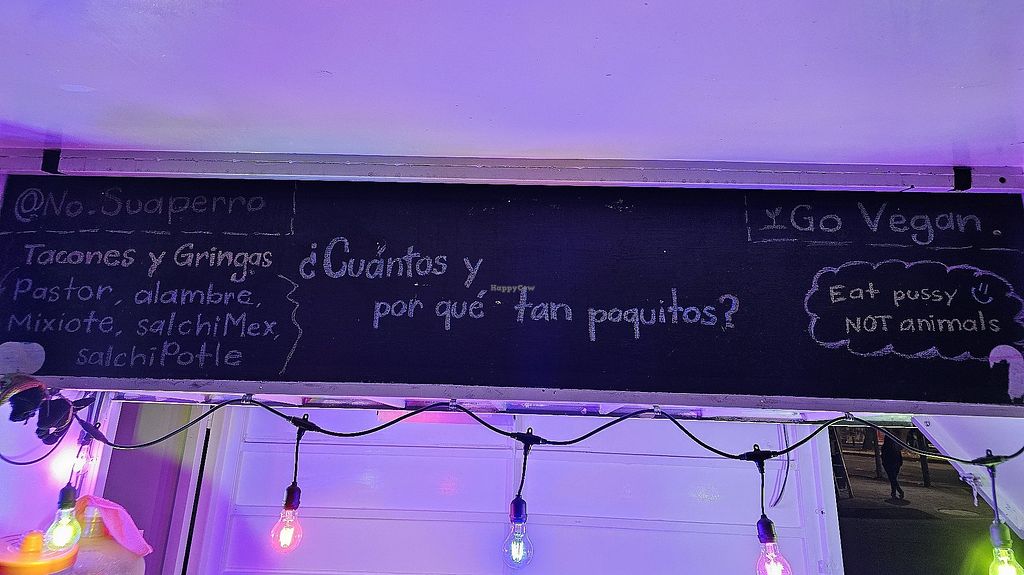 @No.Suaperro
Tacones y Gringas
Pastor, alambre,
Mixiote, salchiMex,
salchiPotle
¿Cuántos y
por qué tan poquitos?
Go Vegan.
Eat pussy
NOT animals
HappyCow